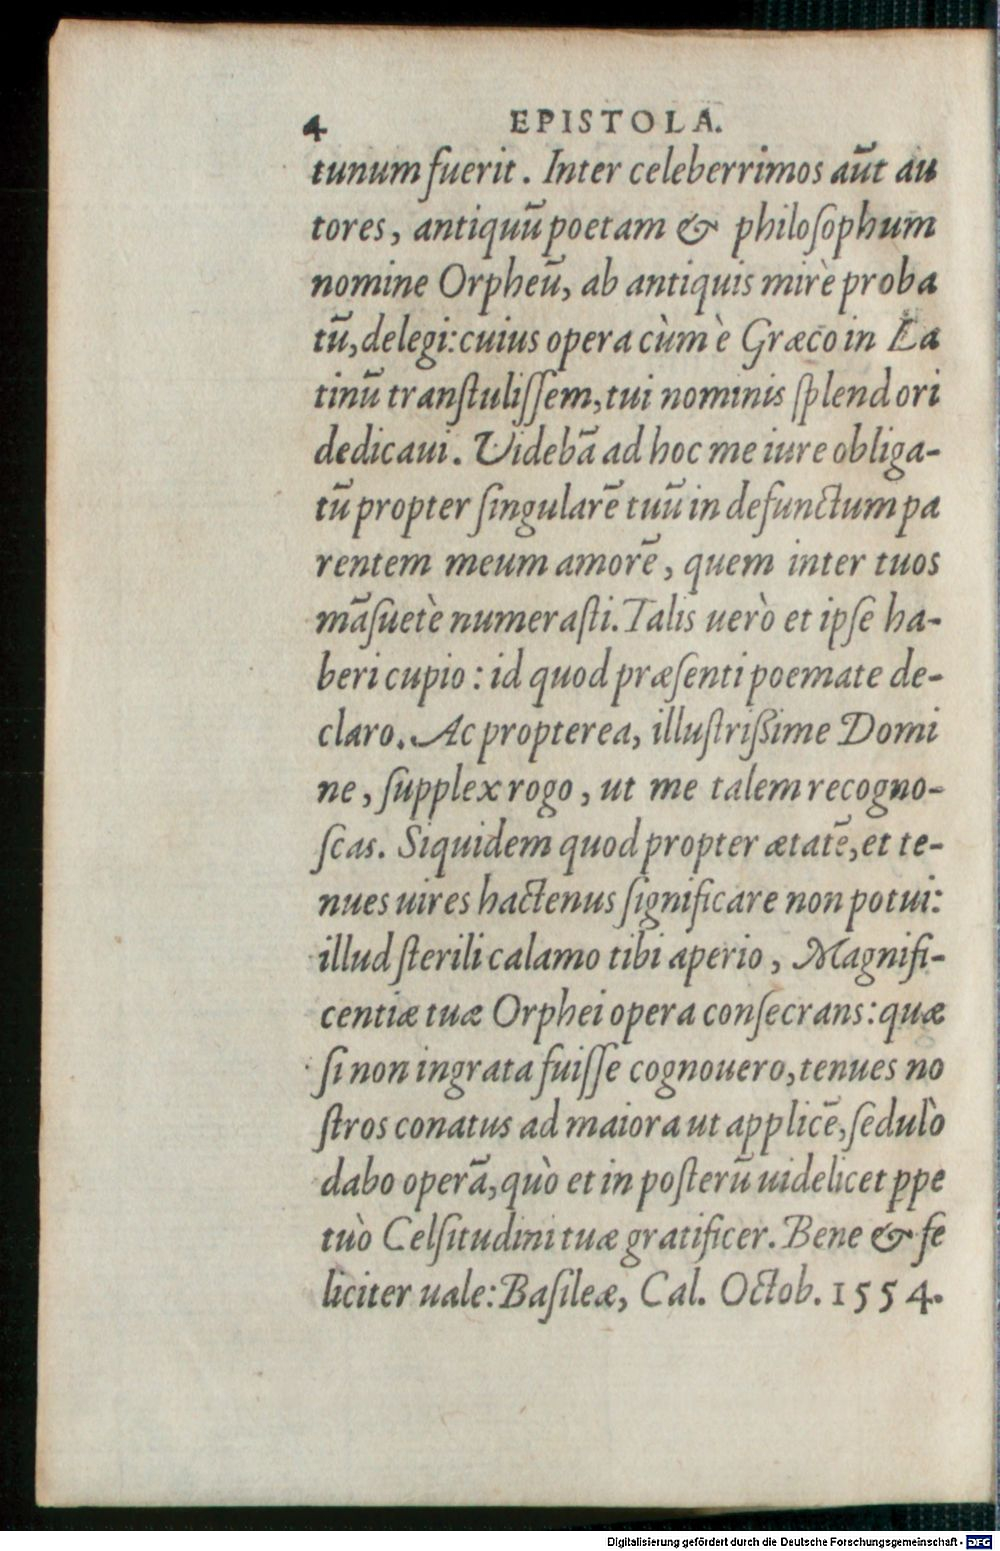 4 EPISTOLA.
tunum fuerit. Inter celeberrimos aũt au
tores, antiquũ poetam & philoſophum
nomine Orpheũ, ab antiquis mirè proba
tũ, delegi: cuius opera cùm è Græco in La
tinũ tranſtuliſſem, tui nominis ſplendori
dedicaui. Videbã ad hoc me iure obliga-
tũ propter ſingularẽ tuũ in defunctum pa
rentem meum amorẽ, quem inter tuos
mãſuetè numeraſti. Talis uerò et ipſe ha-
beri cupio: id quod præſenti poemate de-
claro. Ac propterea, illuſtrißime Domi
ne, ſupplex rogo, ut me talem recogno-
ſcas. Siquidem quod propter ætatẽ, et te-
nues uires hactenus ſignificare non potui:
illud ſterili calamo tibi aperio, Magnifi-
centiæ tuæ Orphei opera conſecrans: quæ
ſi non ingrata fuiſſe cognouero, tenues no
ſtros conatus ad maiora ut applicẽ, ſedulò
dabo operã, quò et in poſterũ uidelicet ꝑpe
tuò Celſitudini tuæ gratificer. Bene & fe
liciter uale: Baſileæ, Cal. Octob. 1554.
Digitalisierung gefördert durch die Deutsche Forschungsgemeinschaft - DFG